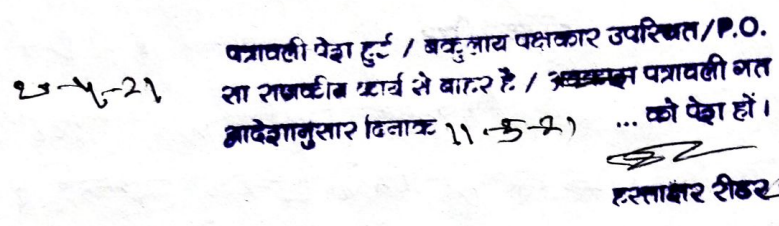 पत्रावली पेश हुई / वकुलाय पक्षकार उपस्थित/P.O.
सा राजकीय कार्य से बाहर है / पत्रावली गत
आदेशानुसार दिनांक 11-5-21 ... को पेश हों।
हस्ताक्षर रीडर